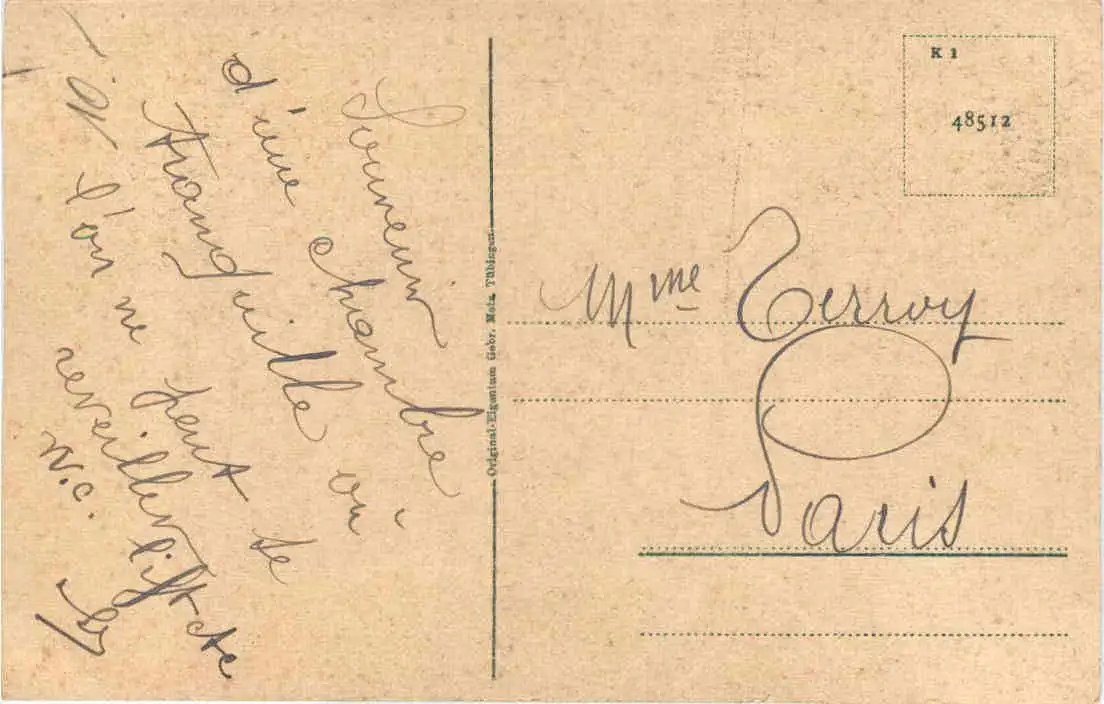 Souvenir
d'une chambre
tranquille où
l'on ne peut se
reveiller lift
Original-Eigentum Gebr. Metz, Tübingen.
K 1
48512
Mme Terroy
Paris